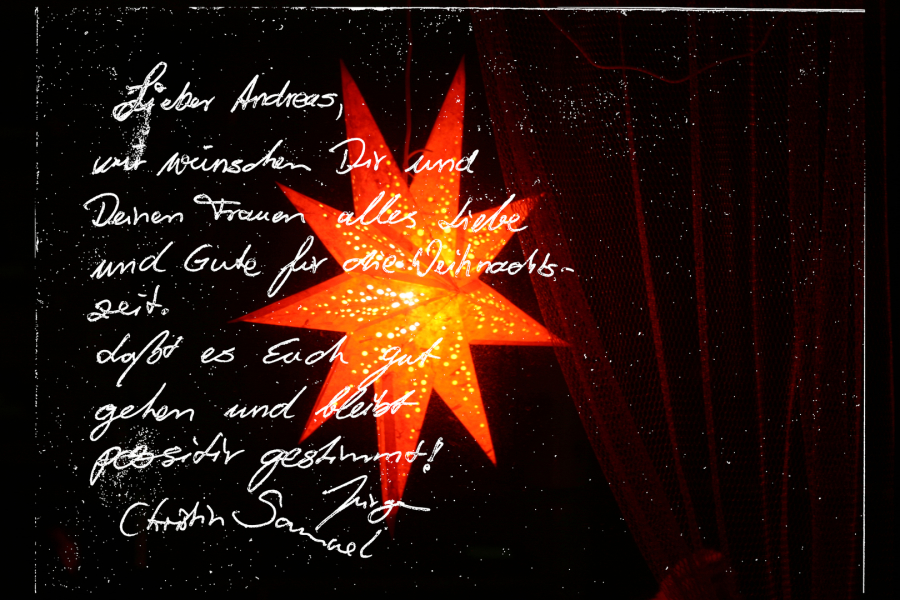 Lieber Andreas,
wir wünschen Dir und
Deinen Frauen alles Liebe
und Gute für die Weihnachts-
zeit.
Laßt es Euch gut
gehen und bleibt
possitiv gestimmt!
Jürgen
Christin Samuel